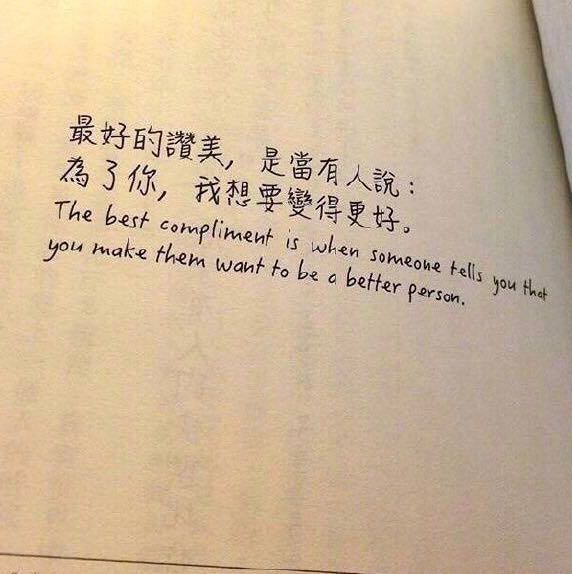 最好的讚美，是當有人說：
為了你，我想要變得更好。
The best compliment is when someone tells you that
you make them want to be a better person.